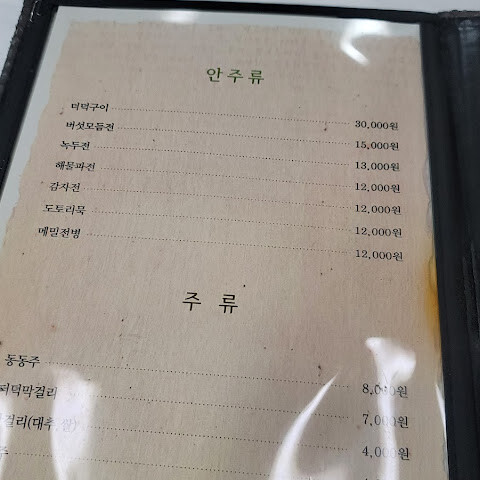 안주류
더덕구이 30,000원
버섯모듬전 15,000원
녹두전 13,000원
해물파전 12,000원
감자전 12,000원
도토리묵 12,000원
메밀전병 12,000원
주 류
동동주 8,000원
더덕막걸리 7,000원
걸리(대추,쌀) 4,000원
주